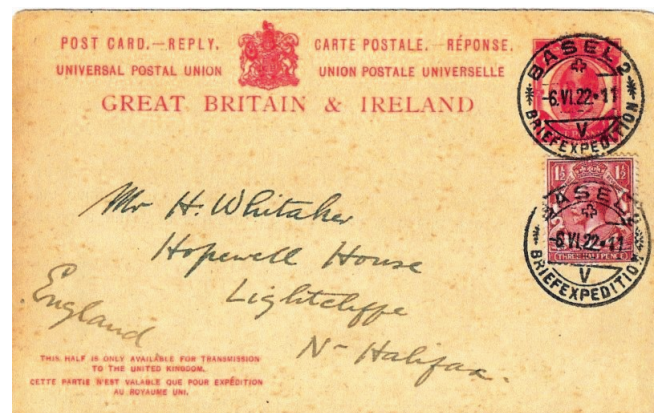 POST CARD.—REPLY.
CARTE POSTALE.—RÉPONSE.
UNIVERSAL POSTAL UNION
UNION POSTALE UNIVERSELLE
GREAT BRITAIN & IRELAND
BASEL 2
-6.VI.22·11
V
BRIEFEXPEDITION
1½ 1½
THREE HALFPENCE
BASEL 2
-6.VI.22·11
V
BRIEFEXPEDITION
Mr H. Whitaker
Hopewell House
Lightcliffe
Nr Halifax.
England
THIS HALF IS ONLY AVAILABLE FOR TRANSMISSION
TO THE UNITED KINGDOM.
CETTE PARTIE N'EST VALABLE QUE POUR EXPÉDITION
AU ROYAUME UNI.